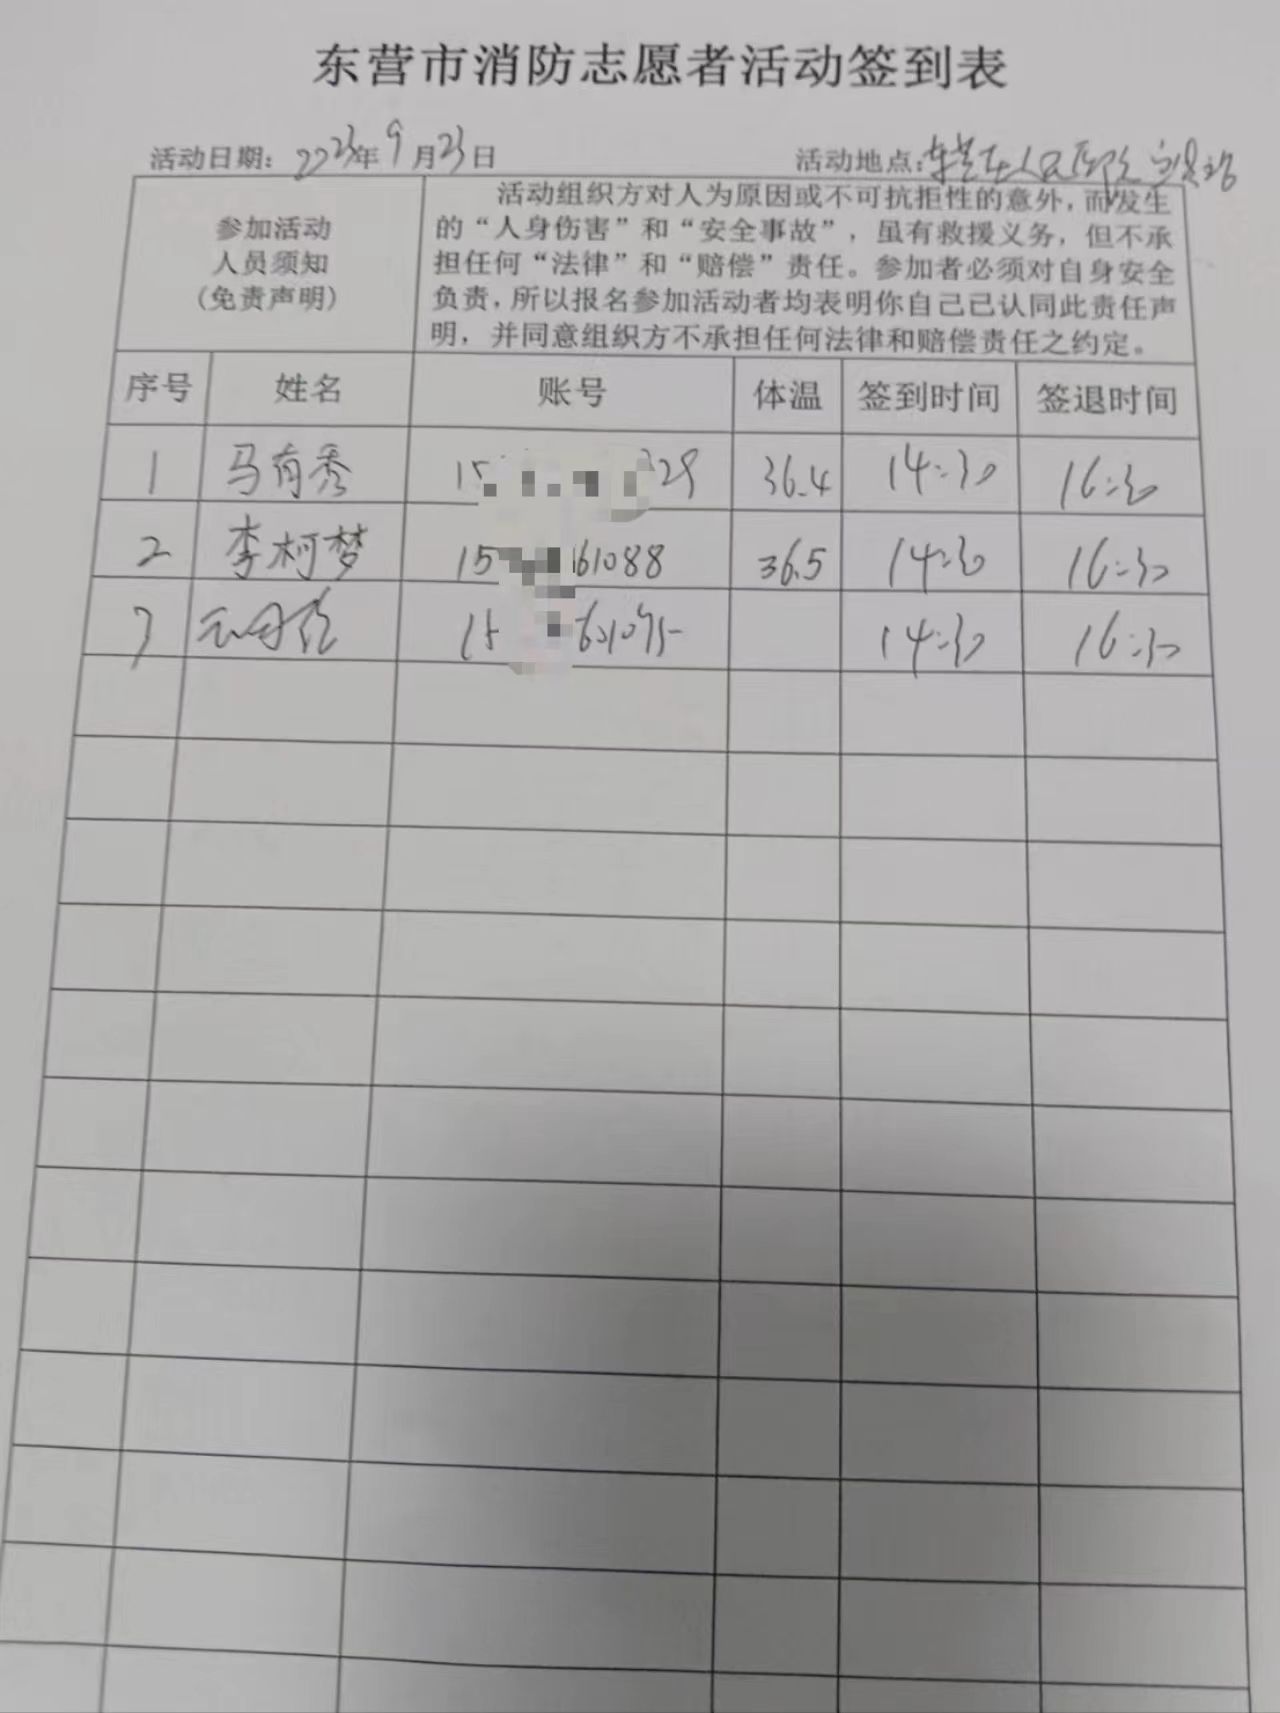 东营市消防志愿者活动签到表
活动日期: 2023年9月23日 活动地点:东营市人民医院
参加活动
人员须知
(免责声明)
活动组织方对人为原因或不可抗拒性的意外,而发生
的“人身伤害”和“安全事故”,虽有救援义务,但不承
担任何“法律”和“赔偿”责任。参加者必须对自身安全
负责,所以报名参加活动者均表明你自己已认同此责任声
明,并同意组织方不承担任何法律和赔偿责任之约定。
序号 姓名 账号 体温 签到时间 签退时间
1 马有秀 15 329 36.4 14:30 16:30
2 李柯梦 15 161088 36.5 14:30 16:30
3 15 14:30 16:30